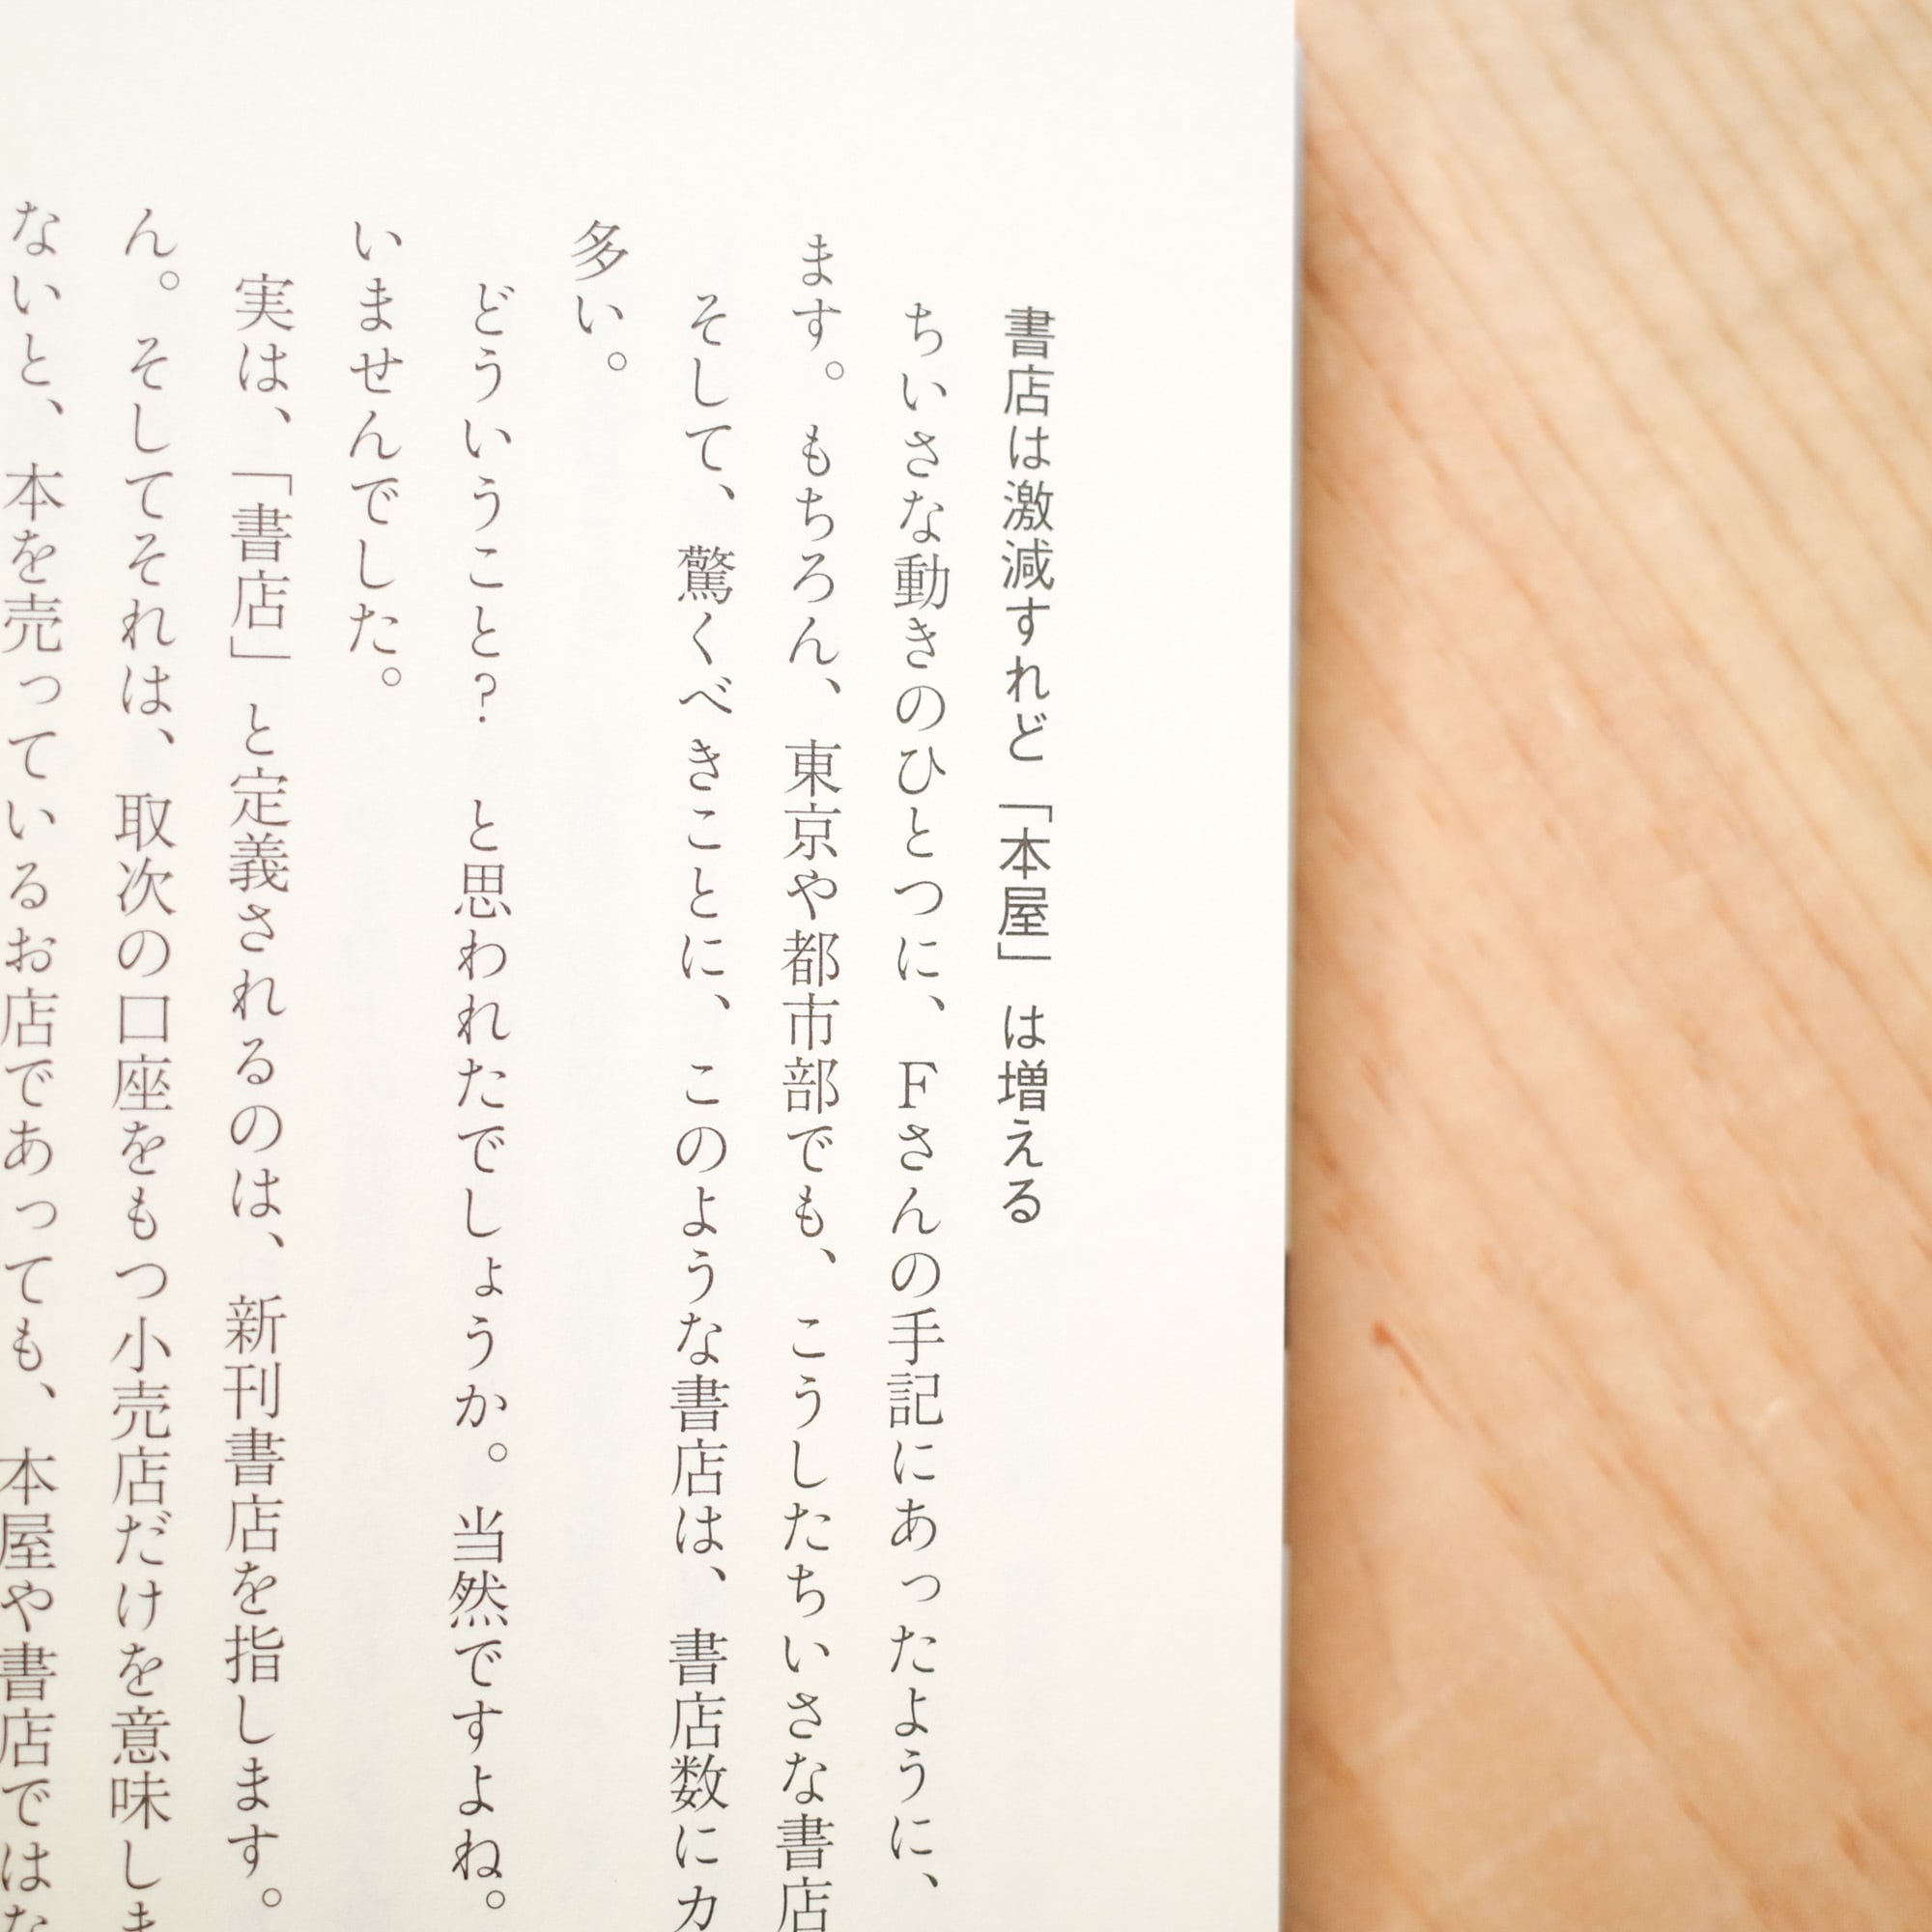 書店は激減すれど「本屋」は増える
ちいさな動きのひとつに、Fさんの手記にあったように、
ます。もちろん、東京や都市部でも、こうしたちいさな書店
そして、驚くべきことに、このような書店は、書店数にカ
多い。
どういうこと? と思われたでしょうか。当然ですよね。
いませんでした。
実は、「書店」と定義されるのは、新刊書店を指します。
ん。そしてそれは、取次の口座をもつ小売店だけを意味しま
ないと、本を売っているお店であっても、本屋や書店ではな